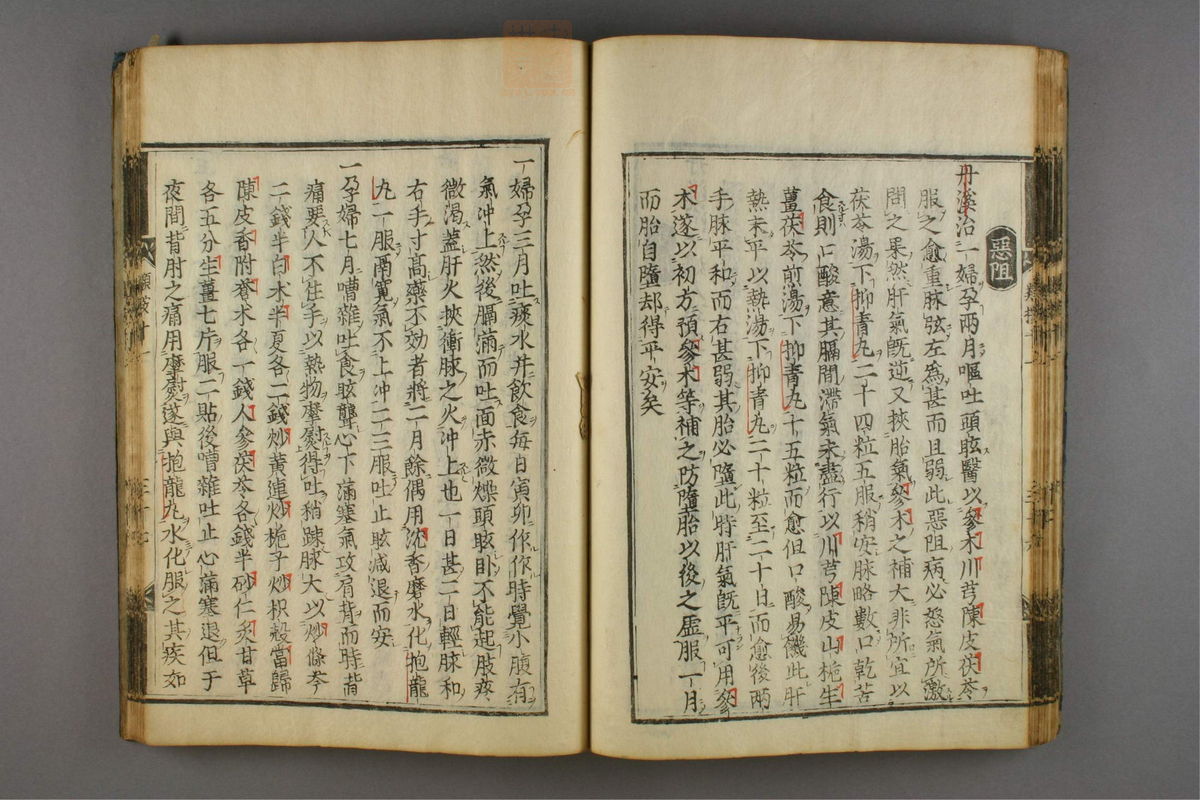 惡阻
丹溪治一婦孕兩月嘔吐頭眩醫以參朮川芎陳皮茯苓
服之愈重脉弦左爲甚而且弱此惡阻病必怒氣所激
問之果然肝氣旣逆又挾胎氣參朮之補大非所宜以
茯苓湯下抑青丸二十四粒五服稍安脉略數口乾苦
食則口酸意其膈間滯氣未盡行以川芎陳皮山梔生
薑茯苓煎湯下抑青丸十五粒而愈但口酸易饑此肝
熱未平以熱湯下抑青丸二十粒至二十日而愈後兩
手脉平和而右甚弱其胎必墮此時肝氣旣平可用參
朮遂以初方預參朮等補之防墮胎以後之虛服一月
而胎自墮却得平安矣
一婦孕三月吐痰水并飲食每日寅卯作作時覺小腹有
氣沖上然後膈滿而吐面赤微燥頭眩卧不能起肢疼
微渴蓋肝火挾衝脉之火沖上也一日甚二日輕脉和
右手寸高藥不効者將二月餘偶用沈香磨水化抱龍
丸一服膈寬氣不上沖二三服吐止眩减退而安
一孕婦七月嘈雜吐食眩聾心下滿塞氣攻肩背兩時皆
痛要人不住手以熱物摩熨得吐稍踈脉大以炒條芩
二錢半白朮半夏各二錢炒黄連炒梔子炒枳殻當歸
陳皮香附蒼朮各一錢人參茯苓各錢半砂仁炙甘草
各五分生薑七片服二貼後嘈雜吐止心滿塞退但于
夜間背肘之痛用摩熨遂與抱龍丸水化服之其疾如